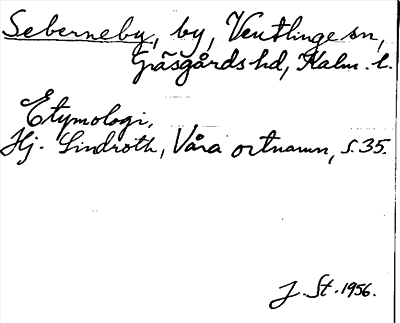 Seberneby, by, Ventlinge sn,
Gräsgårds hd, Kalm. l.
Etymologi.
Hj. Lindroth, Våra ortnamn, s. 35.
J. St. 1956.